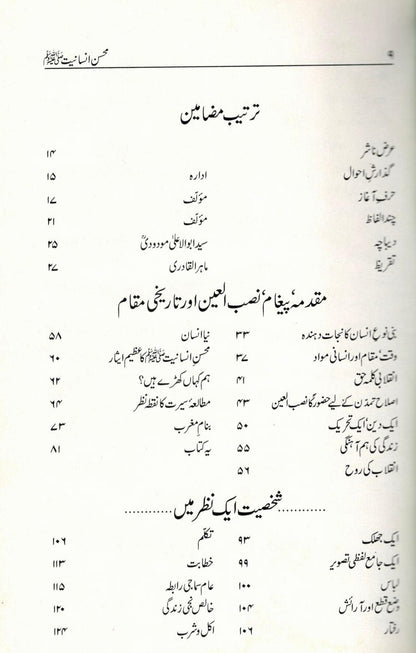 ۹ محسن انسانیت ﷺ
ترتیب مضامین
عرض ناشر ۱۴
گذارش احوال ادارہ ۱۵
حرف آغاز مؤلف ۱۷
چند الفاظ مؤلف ۲۱
دیباچہ سید ابوالاعلیٰ مودودیؒ ۲۵
تقریظ ماہر القادری ۲۷
مقدمہ، پیغام، نصب العین اور تاریخی مقام
بنی نوع انسان کا نجات دہندہ ۳۳ نیا انسان ۵۸
وقت، مقام اور انسانی مواد ۳۷ محسن انسانیت ﷺ کا عظیم ایثار ۶۰
انقلابی کلمہ حق ۴۱ ہم کہاں کھڑے ہیں؟ ۶۲
اصلاح تمدن کے لیے حضورؐ کا نصب العین ۴۳ مطالعۂ سیرت کا نقطۂ نظر ۶۴
ایک دین، ایک تحریک ۵۰ بنام مغرب ۷۳
زندگی کی ہم آہنگی ۵۵ یہ کتاب ۸۱
انقلاب کی روح ۵۶
............ شخصیت ایک نظر میں ............
ایک جھلک ۹۳ تکلم ۱۰۶
ایک جامع لفظی تصویر ۹۹ خطابت ۱۱۳
لباس ۱۰۰ عام سماجی رابطہ ۱۱۵
وضع قطع اور آرائش ۱۰۴ خالص نجی زندگی ۱۲۰
رفتار ۱۰۶ اکل و شرب ۱۲۴